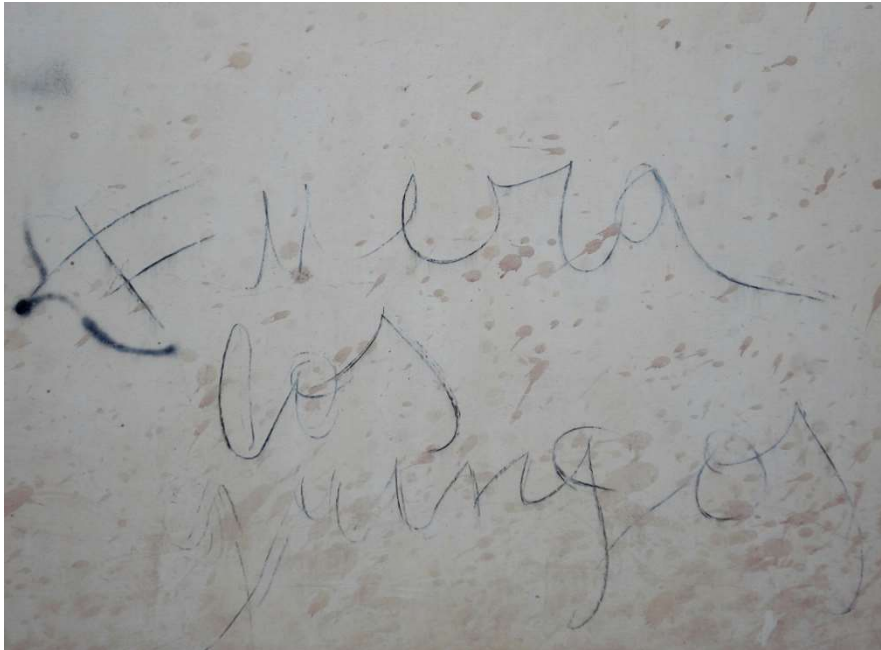 Fuera
los
yungos